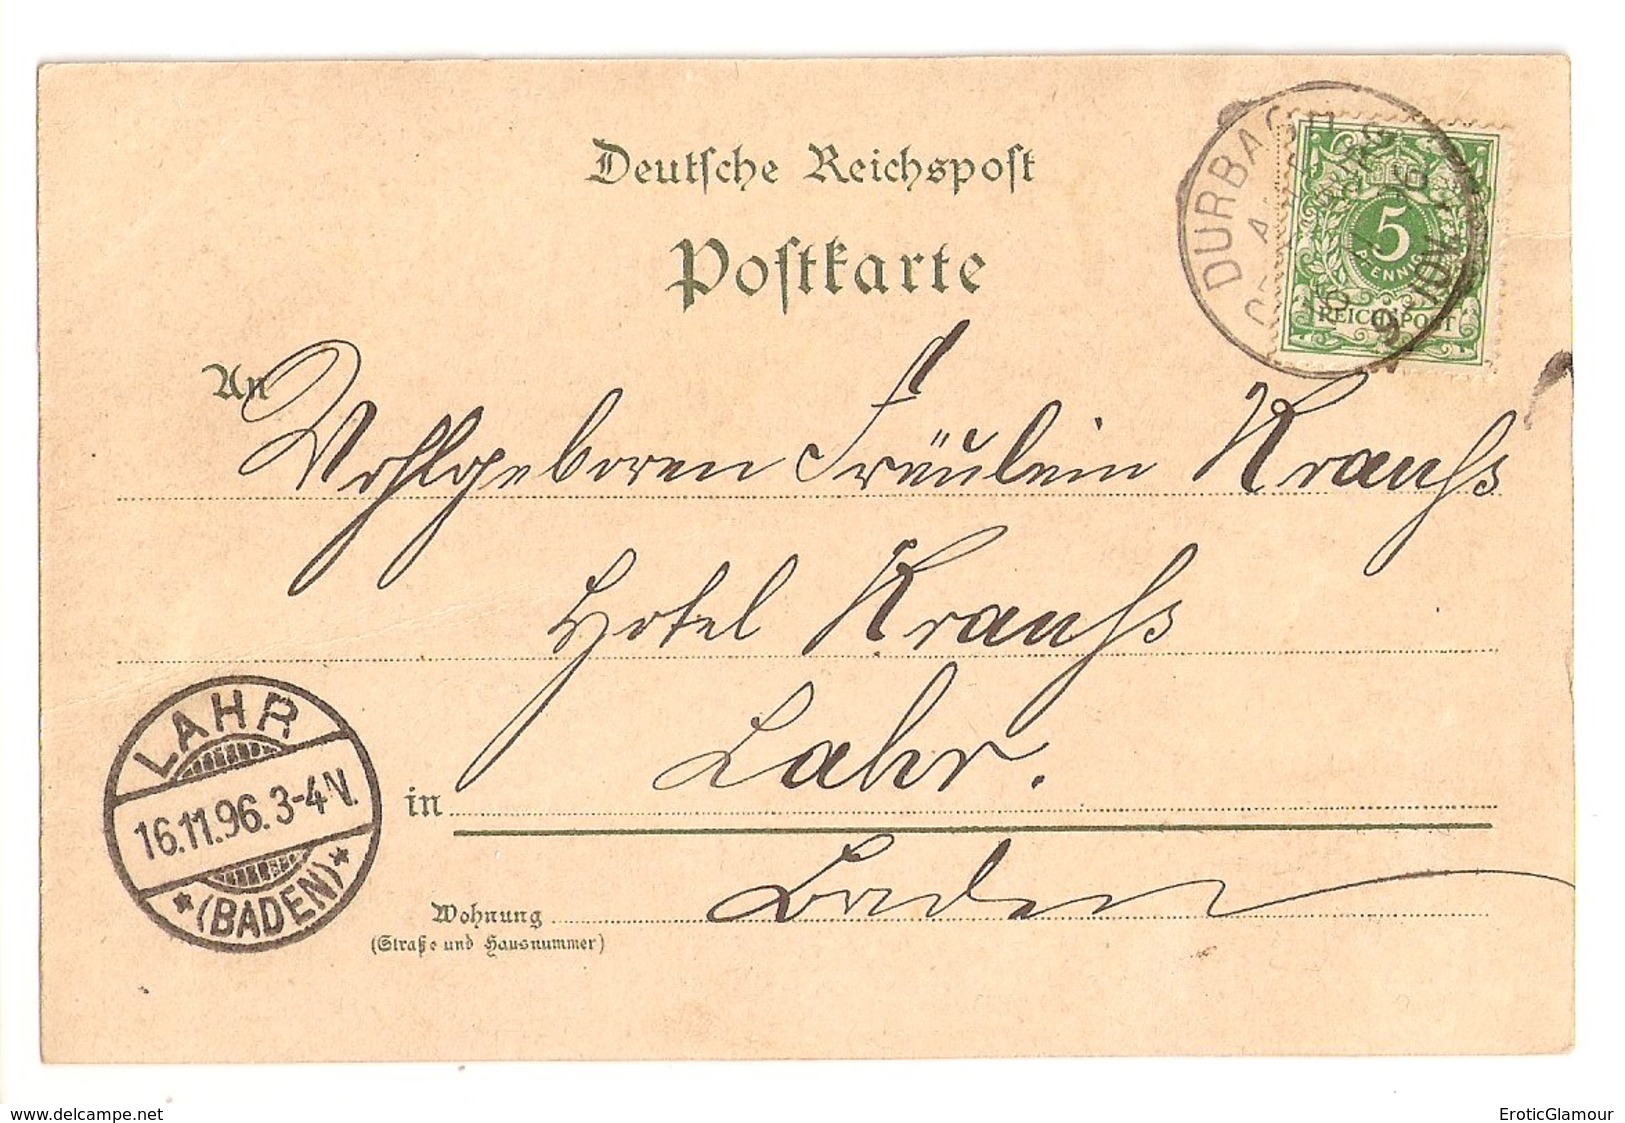 Deutsche Reichspost
Postkarte
DURBACH
5
PFENNIG
REICHSPOST
An
Wohlgeboren Fräulein Krauss
Hotel Krauss
in Lahr.
LAHR
16.11.96. 3-4 N.
* (BADEN) *
Baden
Wohnung
(Straße und Hausnummer)
www.delcampe.net
EroticGlamour